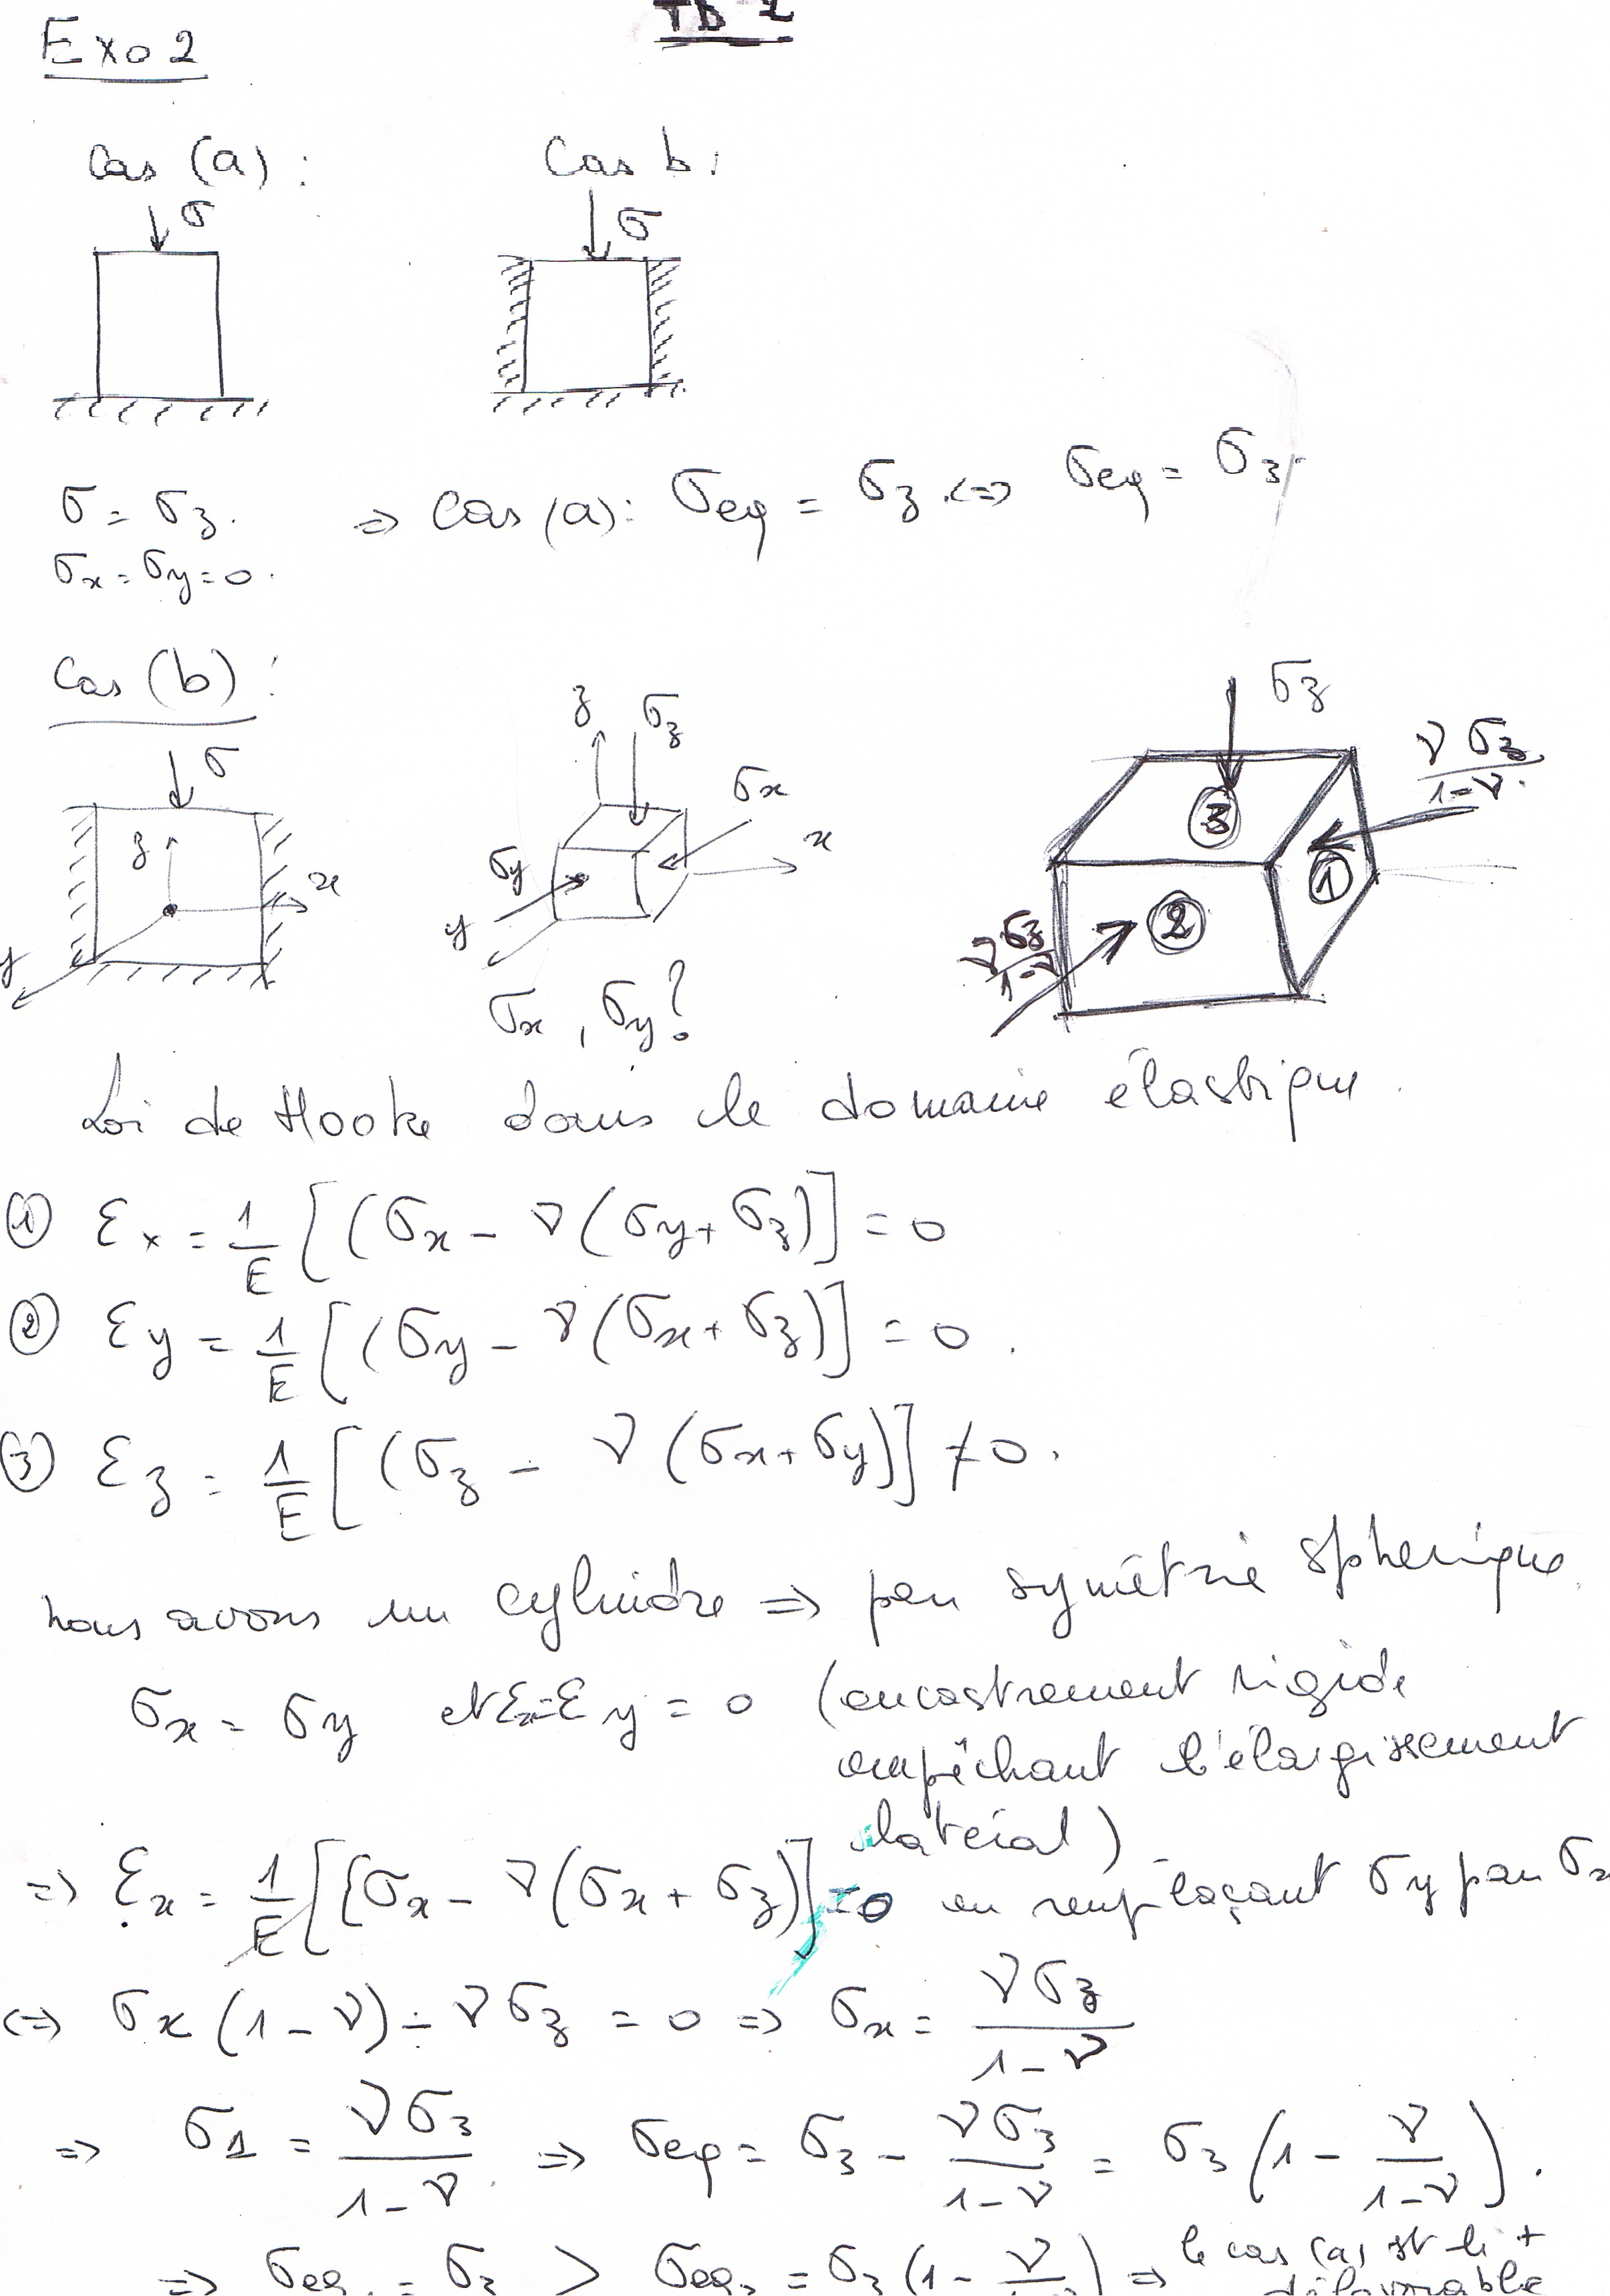 TD 2
Exo 2
Cas (a) :
Cas b :
σ
σ
σ = σz.
σx = σy = 0.
⇒ Cas (a) : σeq = σz ⇔ σeq = σ3
Cas (b) :
σ
z
x
y
z
σz
σx
x
σy
y
σx, σy ?
σz
νσz/1-ν
νσz/1-ν
③
①
②
Loi de Hooke dans le domaine élastique.
① Ɛx = 1/E [(σx - ν(σy + σz)] = 0
② Ɛy = 1/E [(σy - ν(σx + σz)] = 0.
③ Ɛz = 1/E [(σz - ν(σx + σy)] ≠ 0.
nous avons un cylindre ⇒ par symétrie spherique.
σx = σy et Ɛx = Ɛy = 0 (encastrement rigide
empêchant l'élargissement
latéral)
⇒ Ɛx = 1/E [(σx - ν(σx + σz)] = 0 en remplaçant σy par σx
⇔ σx(1 - ν) - νσz = 0 ⇒ σx = νσz/1-ν
⇒ σ1 = νσ3/1-ν ⇒ σeq = σ3 - νσ3/1-ν = σ3(1 - ν/1-ν).
⇒ σeq = σ3 > σeq = σ3(1 - ν ) ⇒ le cas (a) est le +
défavorable